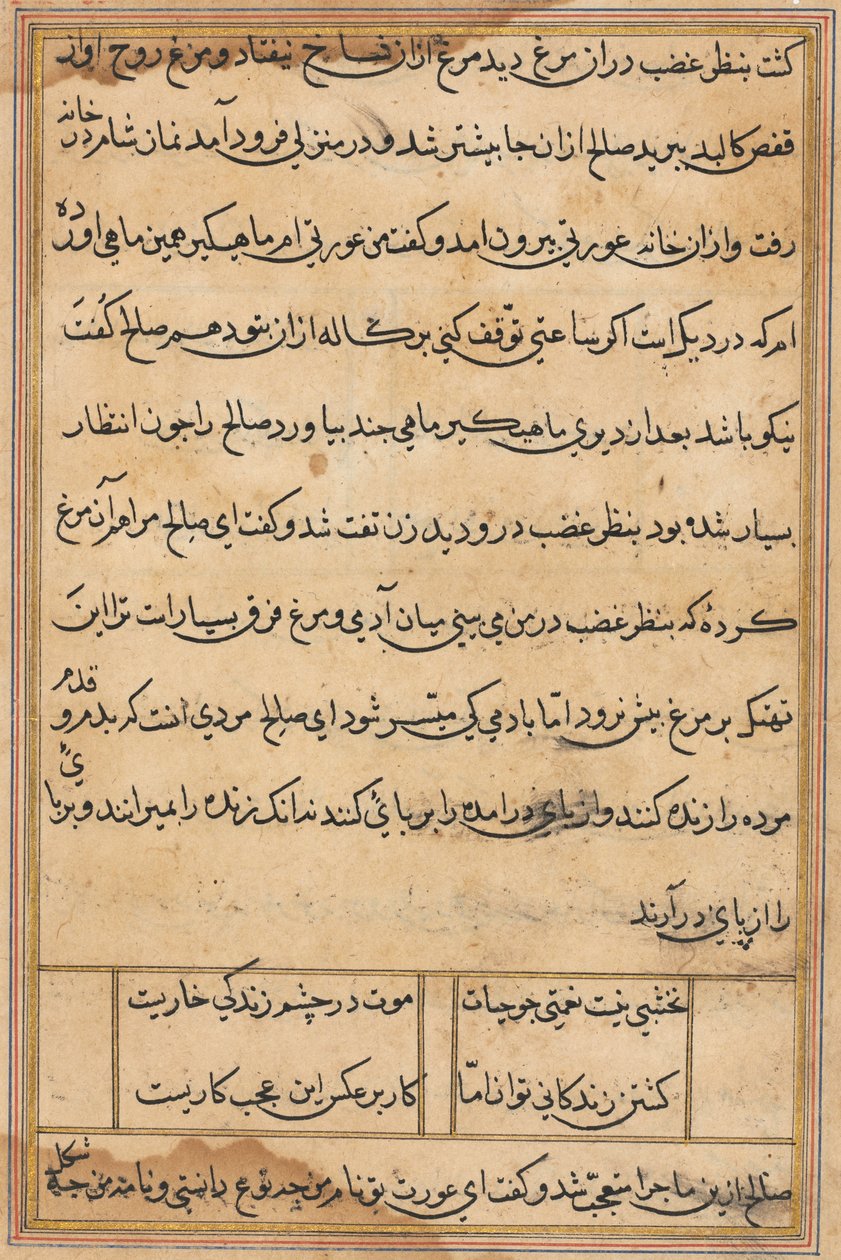 کشت بنظر غضب دران مرغ دید مرغ ازان شاخ نیفتاد و مرغ روح اواز
قفص کالبد ببرید صالح ازان جا بیشتر شد و در منزلی فرود آمد نماز شام در خانه
رفت و ازان خانه عورتی بیرون امد و کفت من عورتی ام ماهیکیر همین ماهی اورده
ام که در دیک است اکر ساعتی توّقف کنی برکاله ازان بتو دهم صالح کُفتَ
نیکو باشد بعد از دیری ماهیکیر ماهی جند بیاورد صالح را جون انتظار
بسیار شده بود بنظر غضب درو دید زن تفت شد و کفت ای صالح مرا هم آن مرغ
کردهٔ که بنظر غضب در من می بینی میان آدمی و مرغ فرق بسیار است ترا این
تهتک بر مرغ بیش نرود امّا بادمی کی میسّر شود ای صالح مردی انست که بدم و قدم
مرده را زنده کنند و از بای درامده را بر بایٔ کنند نه انک زنده را بمیرانند و بر بایٔ
را از پای درآرند
نخشبی نیست نعمتی جو حیات
موت در چشم زندکی خاریست
کشتن زندکانی توان امّا
کار بر عکس این عجب کاریست
صالح ازین ماجرا متعجّب شد و کفت ای عورت تو نام من چه نوع دانستی و نامه من چه شکل